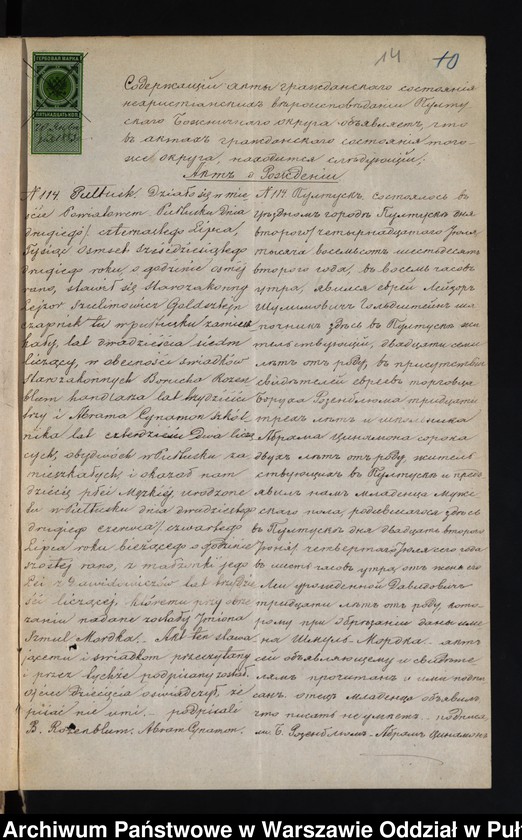 14 10
ГЕРБОВАЯ МАРКА
ПЯТЬНАДЦАТЬ КОП.
Содержащій акты гражданскаго состоянія
нехристіанскихъ вѣроисповѣданій Пулту
скаго Божничнаго округа объявляетъ, что
въ актахъ гражданскаго состоянія того-
же округа, находится слѣдующій:
Актъ о Рожденіи
N 114 Pułtusk. Działo się w mie
ście Powiatowem Pułtusku dnia
drugiego/czternastego Lipca,
Tysiąc ośmset sześćdziesiątego
drugiego roku, o godzinie ósméj
rano, stawił się Starozakonny
Lejzor Szulimowicz Goldsztejn
czapnik tu w Pułtusku zamiesz
kały, lat dwadzieścia siedm
liczący, w obecności świadków
Starozakonnych Borucha Rozen
blum handlarza lat trzydzieści
trzy i Abrama Cynamon szkól
nika lat czterdzieści dwa licz
cych, obydwóch w Pułtusku za
mieszkałych, i okazał nam
dziecię płci Męzkiéj, urodzone
w Pułtusku dnia dwudziestego
drugiego czerwca/czwartego
Lipca roku bieżącego o godzinie
szóstéj rano, z małżonki jego
Lei z Dawidowiczów lat trzydzie
ści liczącéj, któremu przy obrze
zaniu nadane zostały Imiona
Szmul Mordka. – Akt ten stawa
jącemu i świadkom przeczytany
i przez tychże podpisany został.
Ojciec dziecięcia oświadczył, że
pisać nie umi. – podpisali
B. Rozenblum. Abram Cynamon.
N 114 Пултускъ, состоялось въ
уѣздномъ городѣ Пултускѣ дня
втораго/четырнадцатаго Іюля
тысяча восемьсотъ шестьдесятъ
втораго года, въ восемь часовъ
утра, явился еврей Лейзоръ
Шулимовичъ Гольдштейнъ ша
почникъ здѣсь въ Пултускѣ жи
тельствующій, двадцати семи
лѣтъ отъ роду, въ присутствіи
свидѣтелей евреевъ торговца
Боруха Розенблюма тридцати
трехъ лѣтъ и школьника
Абрама Цинамона сорока
двухъ лѣтъ отъ роду житель
ствующихъ въ Пултускѣ и предъ
явилъ намъ младенца муже
скаго пола, родившагося здѣсь
въ Пултускѣ дня двадцать втораго
Іюня/четвертаго Іюля сего года
въ шесть часовъ утра, отъ жены его
Леи урожденной Давидовичъ
тридцати лѣтъ отъ роду, кото
рому при обрѣзаніи дано имя
на Шмуль-Мордка – актъ
сей объявляющему и свидѣте
лямъ прочитанъ и ими подпи
санъ. отецъ младенца объявилъ,
что писать не умѣетъ. – подписа
ли: Б. Розенблюмъ – Абрамъ Цинамонъ
Archiwum Państwowe w Warszawie Oddział w Puł